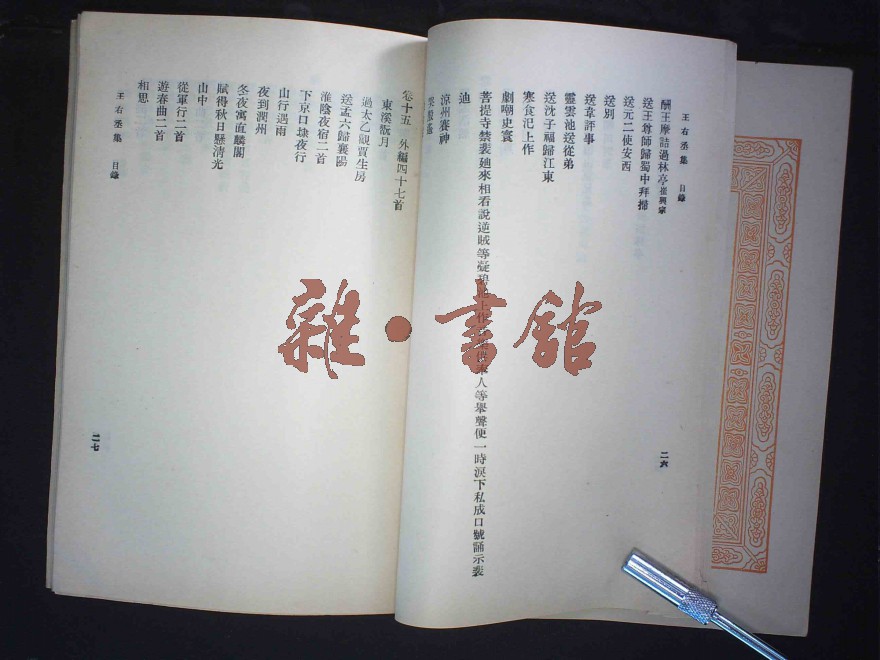 王右丞集 目錄
酬王摩詰過林亭崔興宗
送王尊師歸蜀中拜掃
送元二使安西
送別
送韋評事
靈雲池送從弟
送沈子福歸江東
寒食汜上作
劇嘲史寰
菩提寺禁裴廸來相看說逆賊等凝碧池上作 人等舉聲便一時淚下私成口號誦示裴
廸
涼州賽神
二六
卷十五 外編四十七首
東溪翫月
過太乙觀賈生房
送孟六歸襄陽
淮陰夜宿二首
下京口埭夜行
山行遇雨
夜到潤州
冬夜寓直麟閣
賦得秋日懸清光
山中
從軍行二首
遊春曲二首
相思
王右丞集 目錄
二七
雜·書館